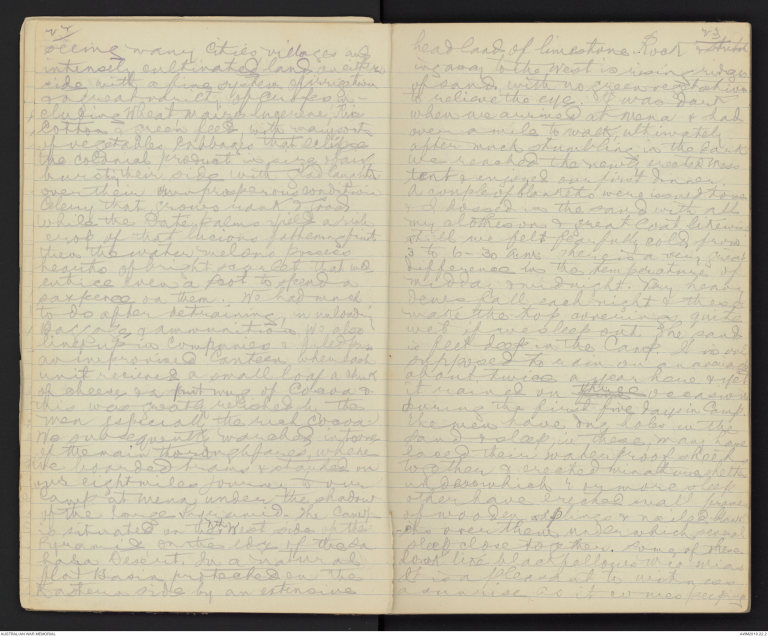 22
seeing many Cities villages and
intensely cultivated land on either
side with a fine system of irrigation
& a great variety of Crops in-
cluding Wheat Maize Lucerne
Cotton & green feed with many sorts
of vegetables Cabbages that eclipse
the colonial product in size &
their side with
over their own prosperous condition
Celery that grows rank &
While the Date palms yield a rich
crop of that luscious fruit
Then the water melons
heights of bright that we
entice even a Scot to spend a
sixpence on them. We had much
to do after detraining, in unloading
Baggage & ammunition. We also
lined up in Companies & filed past
an improvised Canteen where each
unit received a small loaf a chunk
of cheese & a pint mug of Cocoa &
this was greatly relished by the
men especially the Cocoa.
We subsequently marched in
of the main thoroughfares, where
We boarded trams & started on
our eight miles journey to our
Camp at Mena under the shadow
of the large Pyramid. The Camp
is situated on the West side of the
Pyramid on the edge of the Sa
hara Desert. In a natural
flat Basin protected on the
Eastern side by an extensive
23
headland of limestone Rock & stretch
ing away to the West is rising ridges
of sand with no green vegetation
to relieve the eye. It was dark
when we arrived at Mena & had
over a mile to walk, ultimately
after much stumbling in the dark
We reached the newly erected Mess
tent & enjoyed our first dinner.
A couple of blankets were issued to me
& I dossed in the sand with all
my clothes on & great Coat
still we felt fearfully cold from
3 to 6-30 a.m. There is a very great
difference in the temperature of
midday & midnight. Very heavy
dews fall each night & these
make the top coverings quite
wet if we sleep out. The sand
is feet deep in the Camp. It is only
supposed to rain on an average
about twice a year here & yet
it rained on three occasions
during the first five days in Camp.
The men have dug holes in the
sand & sleep in these, many have
laced their waterproof sheets
together & erected
under which 4 or more sleep
other have erected small frames
of wooden & nailed
over them under which several
sleep close together. Some of these
look like blackfellows
It is a pleasant to witness
a sunrise as it comes peeping
AUSTRALIAN WAR MEMORIAL